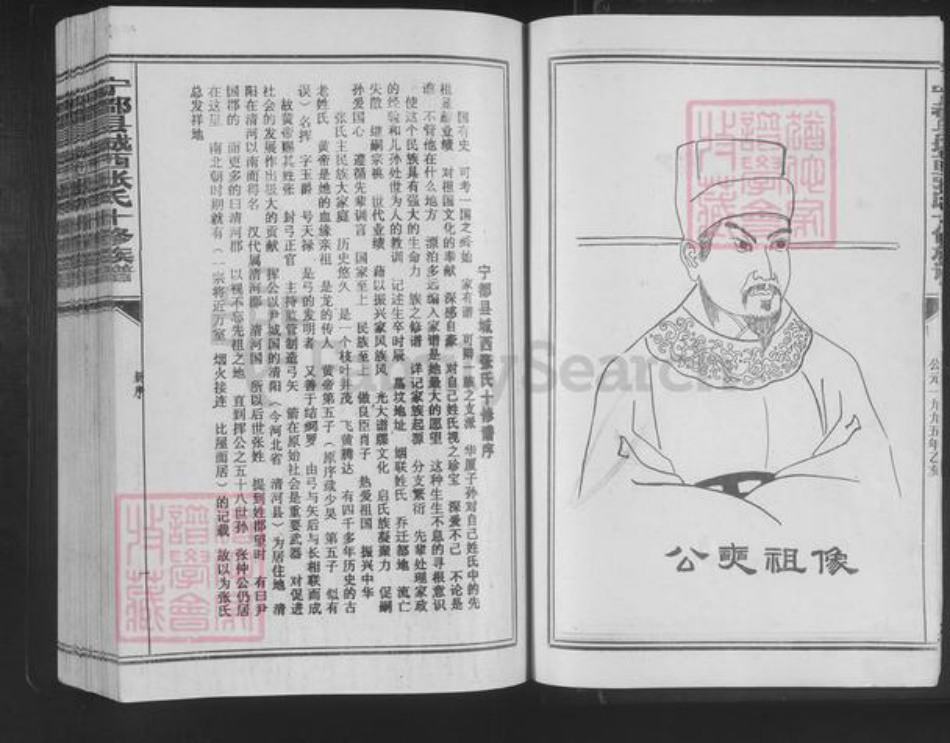 像祖奭公
公元一九九五年乙亥
宁都县城西张氏十修谱序
国有史 可考一国之 始 家有谱 可 族之支派 华厦子孙对自己姓氏中的先
祖 业绩 对祖国文化的奉献 深感自豪 对自己姓氏视之珍宝 深爱不己 不论是
谁 不管他在什么地方 漂泊多远编入家谱是她最大的愿望 这种生生不息的寻根意识
使这个民族具有强大的生命力 族之修谱 详记家族起源 分支繁衍 先辈处理家政
的经验和儿孙处世为人的教训 记述生卒时辰 墓坟地址 姻联姓氏 乔迁都地 流亡
失散 继嗣宗祧 世代业绩 藉以振兴家风族风 光大谱牒文化 启氏族凝聚力 促嗣
孙爱国心 遵循先辈训言 国家至上 民族至上 做良臣肖子 热爱祖国 振兴中华
张氏主民族大家庭 历史悠久 是一个枝叶并茂 飞黄腾达 有四千多年历史的古
老姓氏 黄帝是她的血缘亲祖 是龙的传人 黄帝第五子（原序载少昊 第五子 似有
误）名挥 字玉爵 号天禄 是弓的发明者 又善于结网罗 由弓与矢后与长相联而成
故黄帝赐其姓张 封弓正官 主持监管制造弓矢 箭在原始社会是重要武器 对促进
社会的发展作出极大的贡献 挥公以尹城国的清阳（今河北省 清河县）为居住地 清
阳在清河以南而得名 汉代属清河郡 清河国 所以后世张姓 提到姓郡望时 有曰尹
国郡的 而更多的曰清河郡 以视不忘先祖之地 直到挥公之五十八世孙 张仲公仍居
在这里 南北朝时期就有（一宗将近万室 烟火接连 比屋而居）的记载 故以为张氏
总发祥地
新序
一
宁都县城西张氏十修族谱